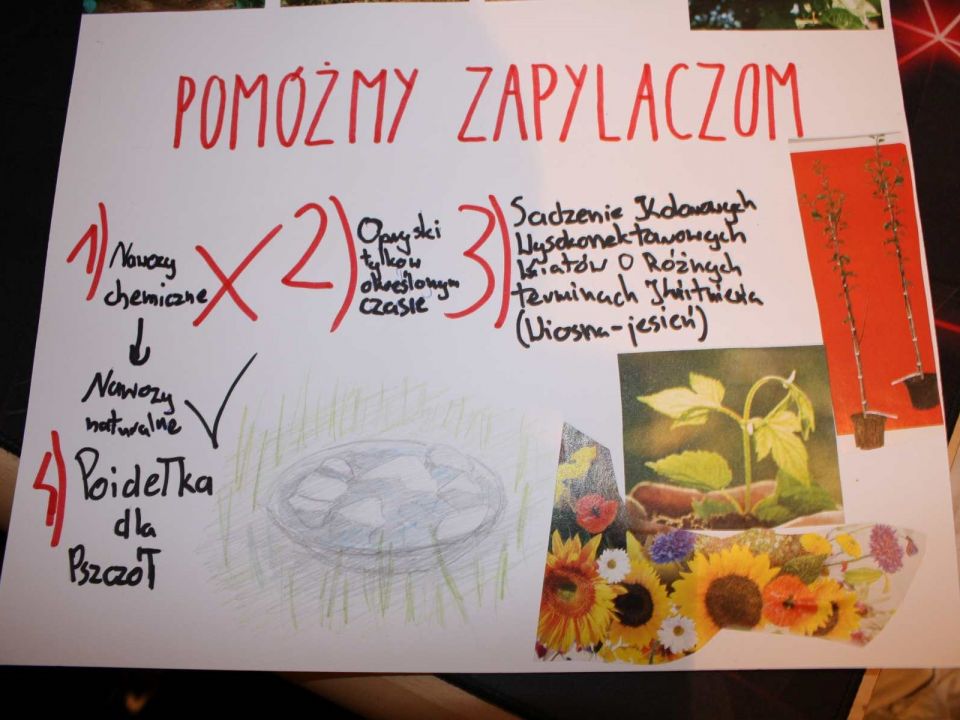 POMÓŻMY ZAPYLACZOM
1) Nawozy
chemiczne X
↓
Nawozy
naturalne ✓
2) Opryski
tylko w
określonym
czasie
3) Sadzenie Kolorowych
Wysokonektarowych
kwiatów O Różnych
terminach Kwitnienia
(Wiosna-jesień)
4) Poidełka
dla
Pszczół